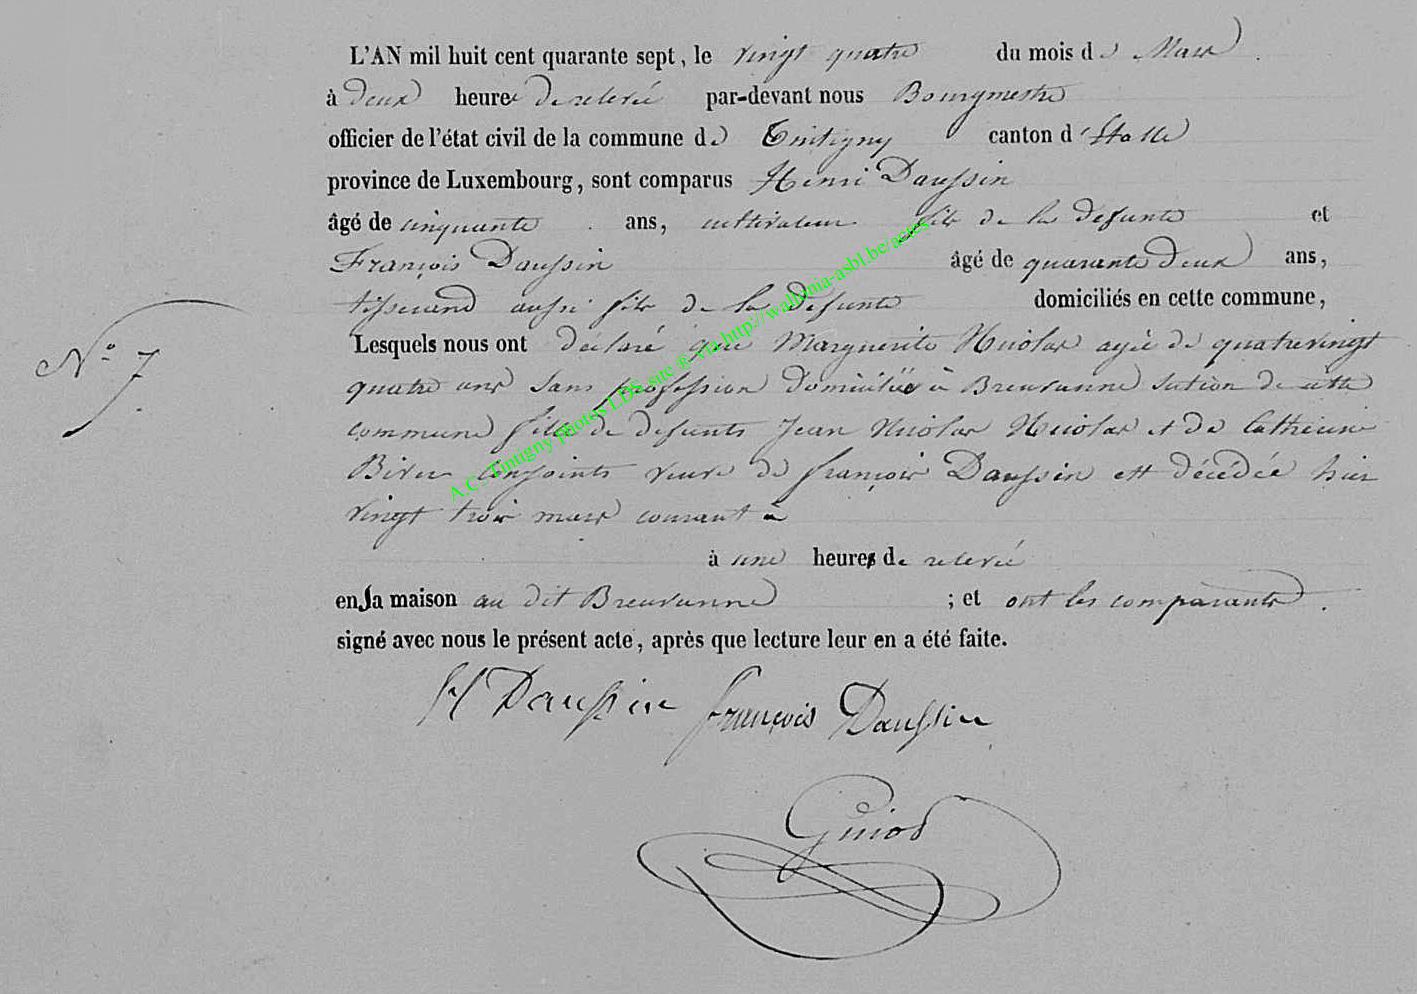 L'AN mil huit cent quarante sept, le vingt quatre du mois de Mars
à deux heures de relevée par-devant nous Bourgmestre
officier de l'état civil de la commune de Tintigny canton d'Etalle
province de Luxembourg, sont comparus Henri Daussin
âgé de cinquante ans, cultivateur fils de la défunte et
François Daussin âgé de quarante deux ans,
tisserand aussi fils de la défunte domiciliés en cette commune,
Lesquels nous ont déclaré que Marguerite Nicolas agée de quatrevingt
N° 7
quatre ans sans profession domiciliée à Breuvanne section de cette
commune fille de défunts Jean Nicolas Nicolas et de Catherine
conjoints veuve de françois Daussin est décédée hier
vingt trois mars courant à
à une heure de relevée
en sa maison au dit Breuvanne ; et ont les comparants
signé avec nous le présent acte, après que lecture leur en a été faite.
H Daussin françois Daussin
Guiot
A.C. Tintigny photos LDS suc ® via http://wallonia-asbl.be/actes